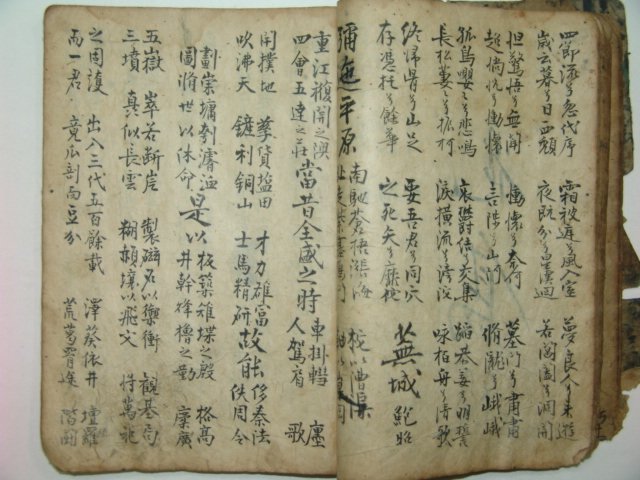 四節流兮忽代序 霜被遲兮風入室 夢良人兮來遊
歲云暮兮日西頹 夜旣分兮星漢回 若閶闔兮洞開
怛驚悟兮無聞 慟懷兮奈何 墓門兮肅肅
超惝怳兮慟懷 言陟兮山阿 脩壟兮峨峨
孤鳥嚶兮悲鳴 哀鬱結兮交集 蹈恭姜兮明誓
長松萋兮振柯 淚橫流兮滂沱 詠栢舟兮清歌
終歸骨兮山足 要吾君兮同穴 蕪城 鮑昭
存憑托兮餘華 之死矢兮靡佗
彌迤平原 南馳蒼梧漲海
重江複關之隩 當昔全盛之時 車掛轊 廛
四會五達之莊 人駕肩 歌
閈撲地 孶貨塩田 才力雄富 故能侈秦法
吹沸天 鏟利銅山 士馬精硏 佚周令
劃崇墉刳濬洫 是以板築雉堞之殷 格高
圖脩世以休命 井幹烽櫓之勤 袤廣
五嶽 崒若斷岸 製磁石以禦衝 觀基扃
三墳 矗似長雲 糊赬壤以飛文 將萬祀
之固護 出入三代五百餘載 澤葵依井 壇羅
而一君 竟瓜剖而豆分 荒葛罥塗 階鬪